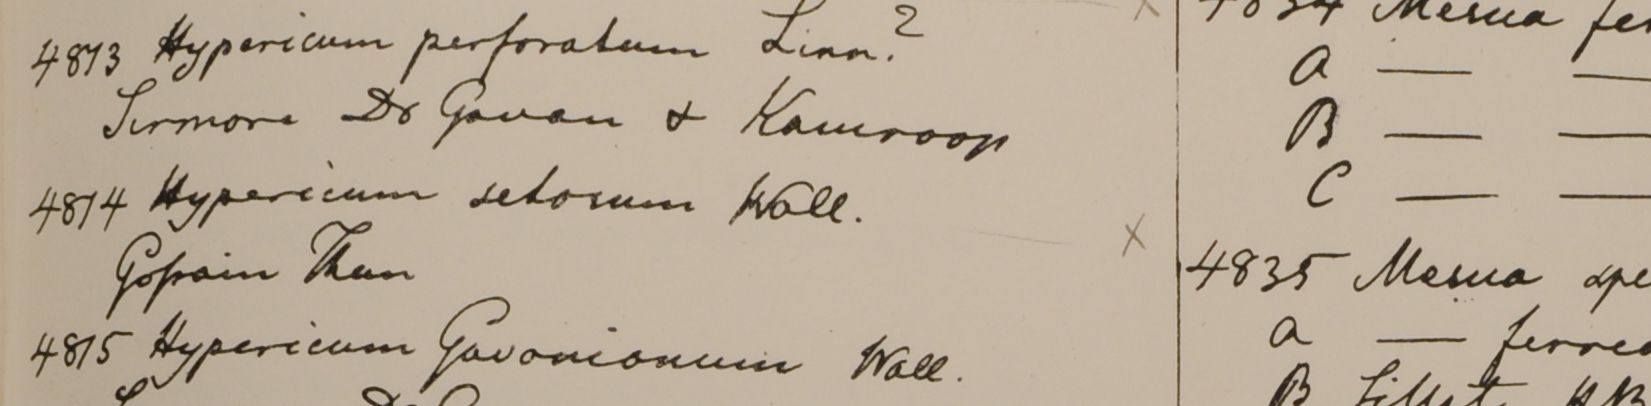 4813 Hypericum perforatum Linn.?
Sirmore Dr Govan & Kamroop
4814 Hypericum setosum Wall.
Gossain Than
4815 Hypericum Govanianum Wall.
4834 Mesua fer
a — —
B — —
C — —
4835 Mesua spe
a — ferrea
B Sillet HB